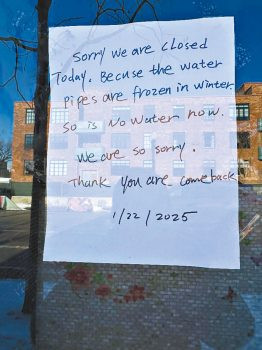 Sorry we are closed
Today. Becuse the water
pipes are frozen in winter
so is No water now.
We are so sorry.
Thank you are comeback
1/22/2025